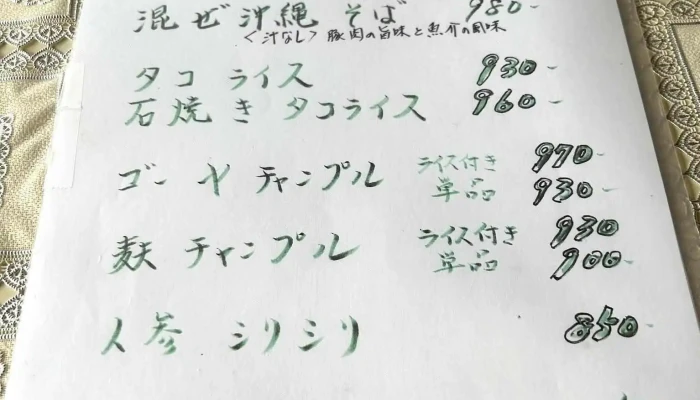 混ぜ沖縄そば 980-
<汁なし> 豚肉の旨味と魚介の風味
タコライス 930-
石焼きタコライス 960-
ゴーヤチャンプル ライス付き 970-
単品 930-
麩チャンプル ライス付き 930
単品 900-
人参シリシリ 850-